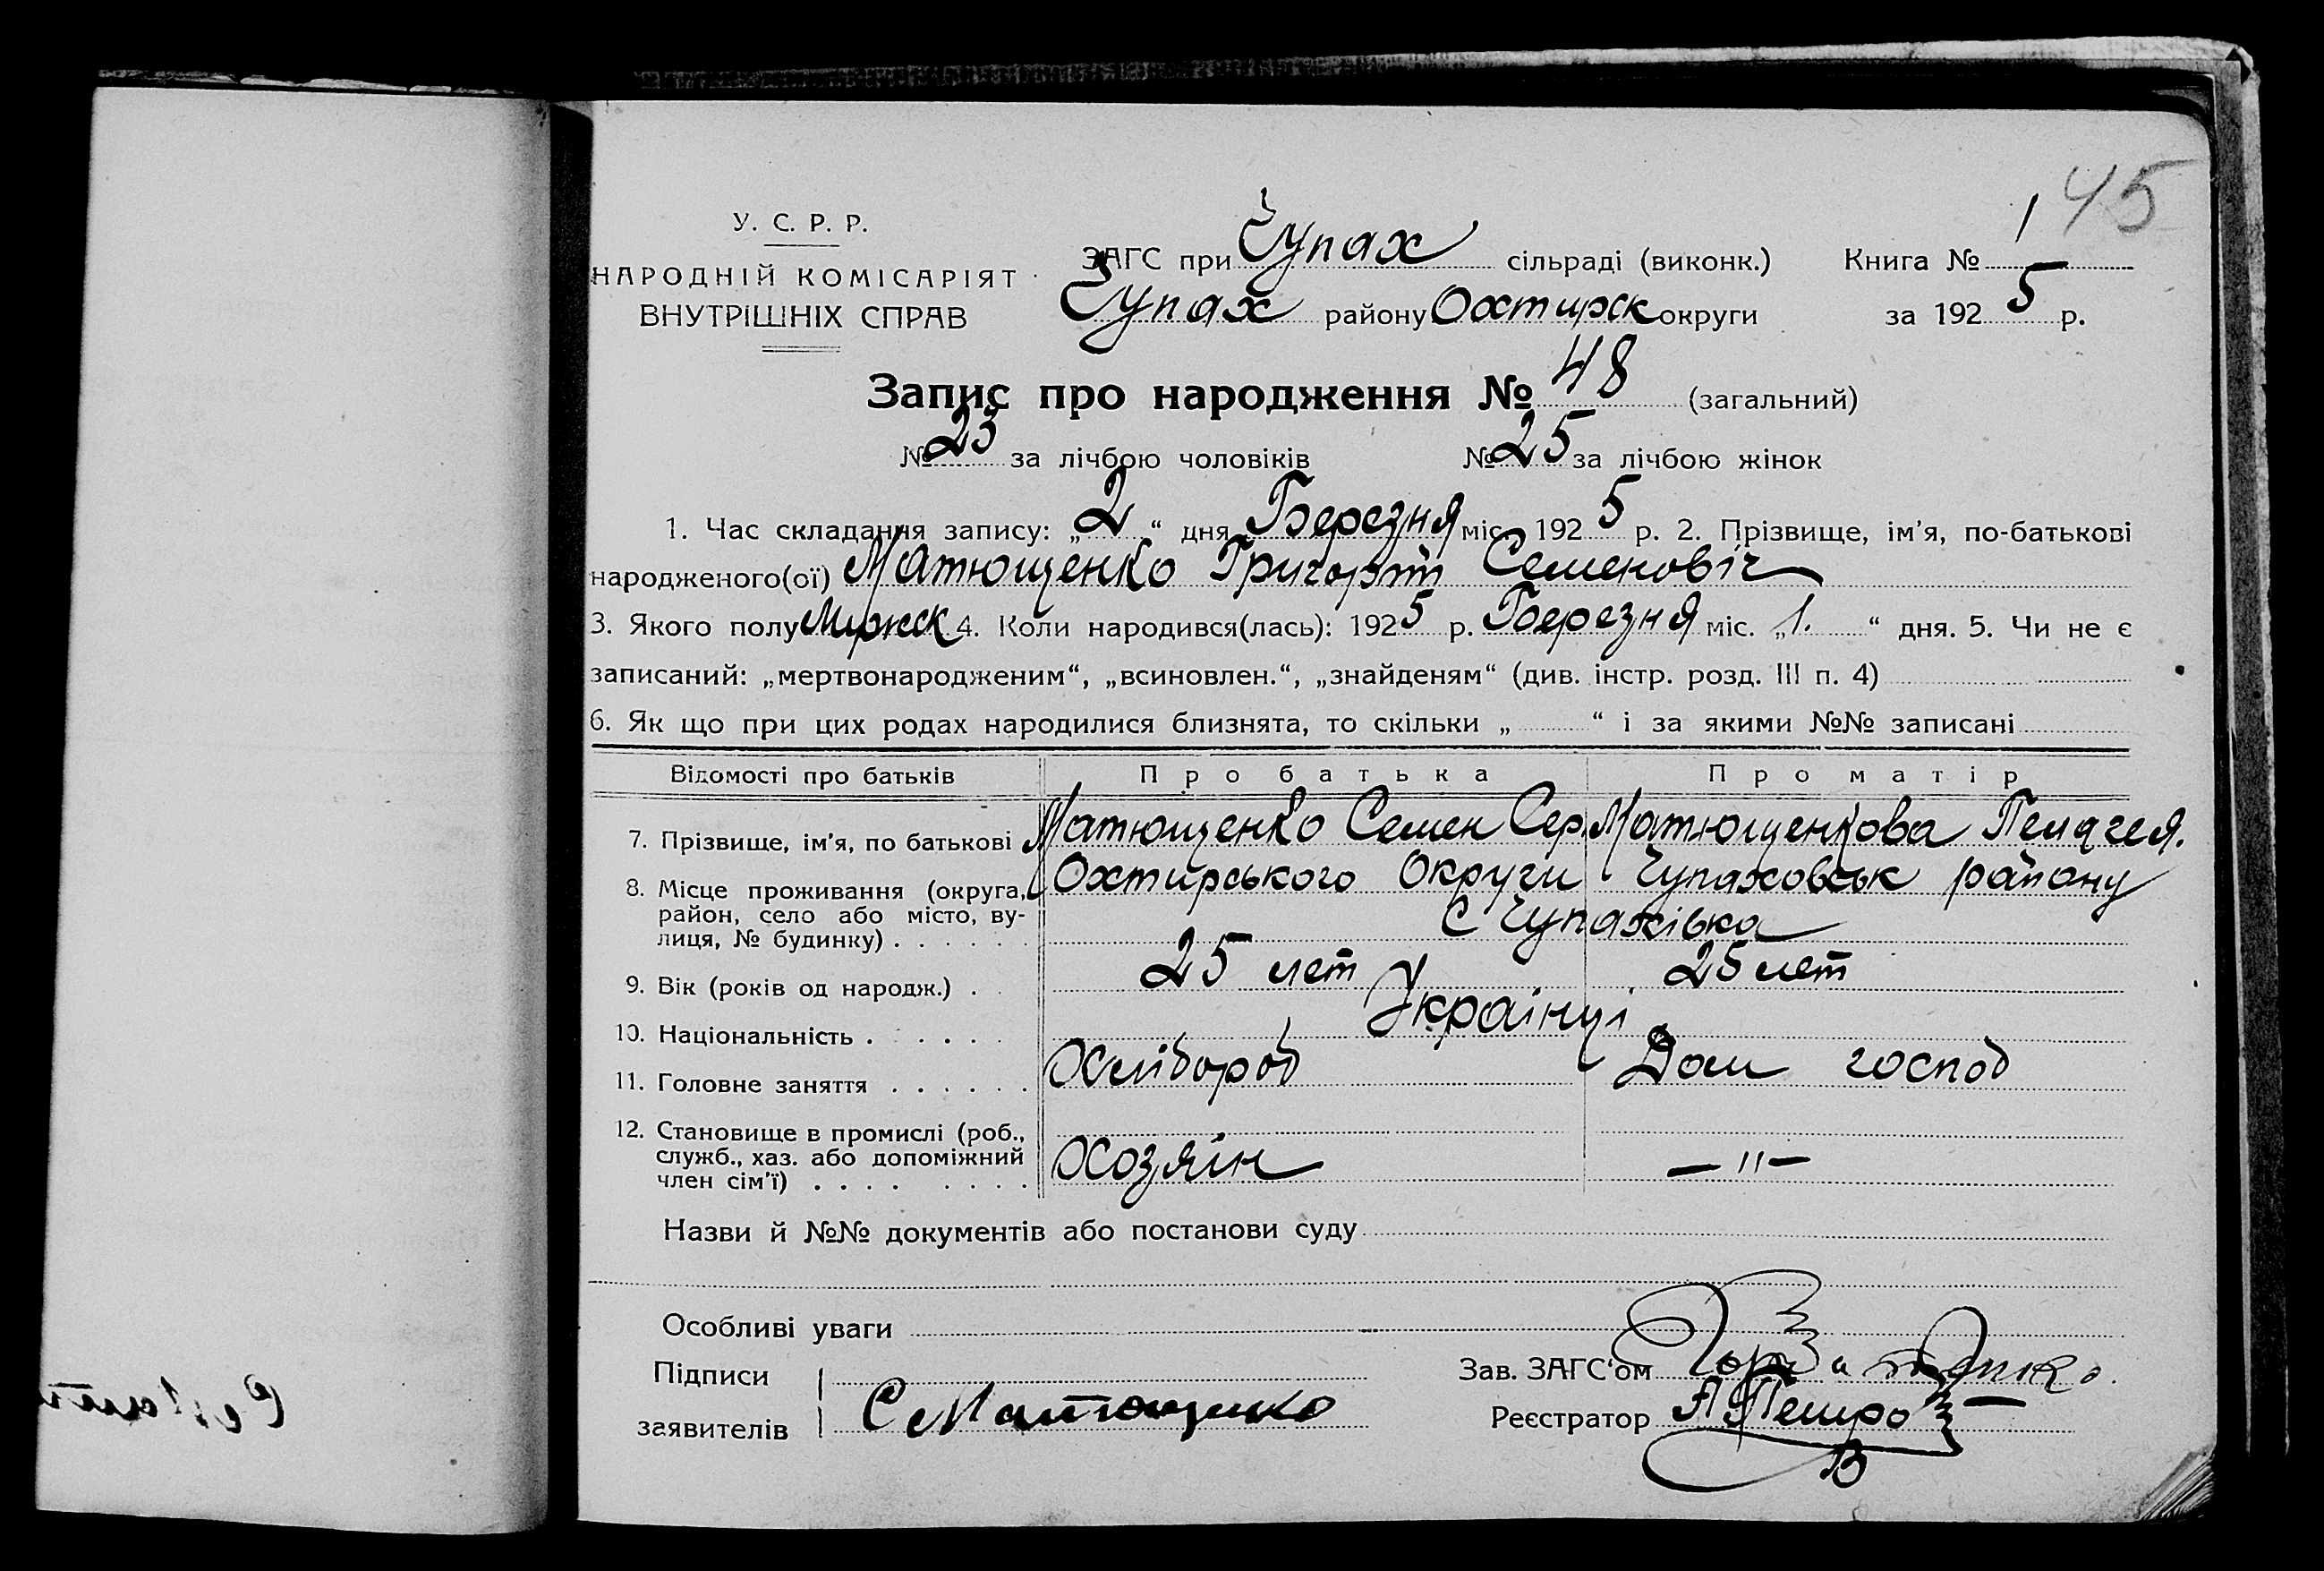 45
У. С. Р. Р.
НАРОДНІЙ КОМІСАРІЯТ
ВНУТРІШНІХ СПРАВ
ЗАГС при Чупах сільраді (виконк.) Книга № 1
Чупах району Охтирск округи за 1925 р.
Запис про народження № 48 (загальний)
№ 23 за лічбою чоловіків № 25 за лічбою жінок
1. Час складання запису: „2“ дня Березня міс. 1925 р. 2. Прізвище, ім'я, по-батькові
народженого(ої) Матющенко Григорій Семеновіч
3. Якого полу Мужск 4. Коли народився(лась): 1925 р. Березня міс. „1.“ дня. 5. Чи не є
записаний: „мертвонародженим“, „всиновлен.“, „знайденям“ (див. інстр. розд. III п. 4)
6. Як що при цих родах народилися близнята, то скільки „ “ і за якими №№ записані
Відомості про батьків Про батька Про матір
7. Прізвище, ім'я, по батькові Матющенко Семен Сер. Матющенкова Пелагея.
8. Місце проживання (округа, Охтирського Округи Чупаховськ району
район, село або місто, ву-
лиця, № будинку) . . . . . . С Чупахівка
9. Вік (років од народж.) . 25 лет 25 лет
10. Національність . . . . . . Украінці
11. Головне заняття . . . . . . Хлібороб Дом господ
12. Становище в промислі (роб.,
служб., хаз. або допоміжний Хозяін — " —
член сім'ї) . . . . . . . .
Назви й №№ документів або постанови суду
Особливі уваги
Підписи Зав. ЗАГС'ом
заявителів С Матющенко Реєстратор